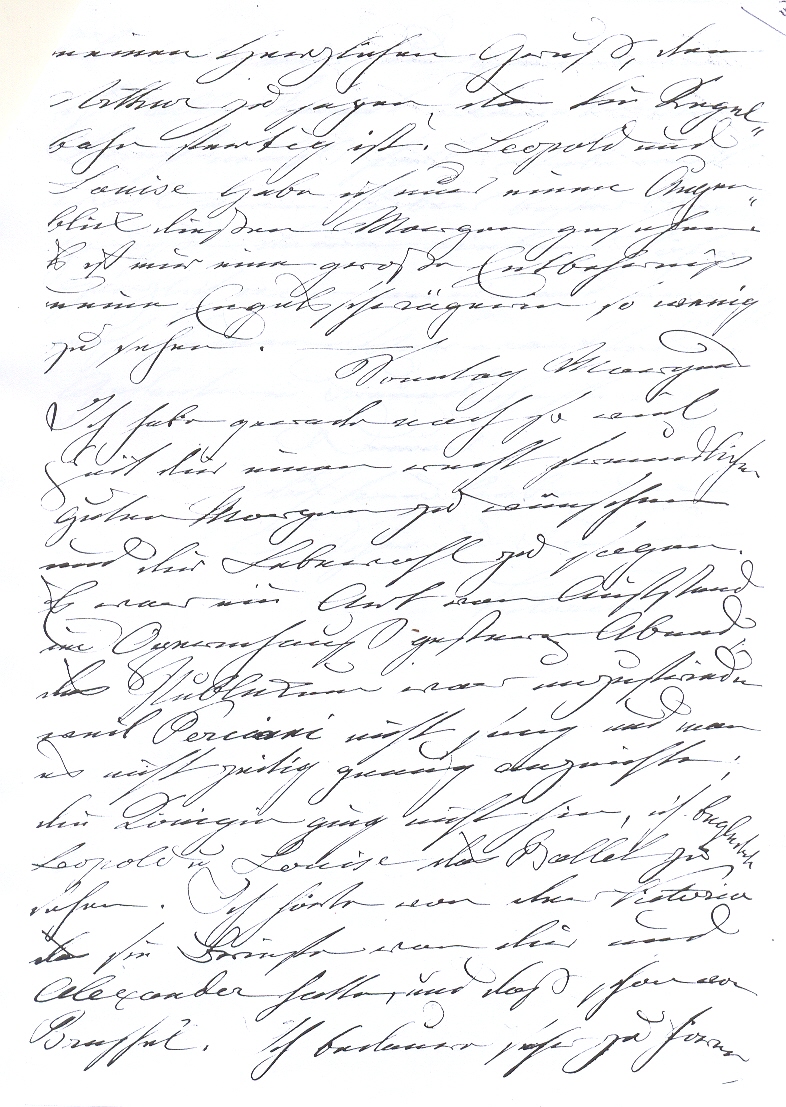 meinen herzlichen Gruß, dem
Arthur zu sagen, daß die Kegel"
bahn fertig ist. Leopold und
Louise habe ich nur einen Augen"
blick diesen Morgen gesehen.
Es ist mir eine große Entbehrniß
meine Engelsschwägerin so wenig
zu sehen. —
Sonntag Morgen
Ich habe gerade noch so viel
Zeit dir einen recht freundlichen
guten Morgen zu wünschen
und dir Lebewohl zu sagen.
Es war ein Art von Aufstand
im Opernhauß gestern Abend,
das Publikum war unzufrieden
weil Persiani nicht sang und man
es nicht zeitig genung anzeichte;
die Königin ging nicht hin, ich begleitete
Leopold u Louise das Ballet zu
sehen. Ich hörte von der Victoria
daß sie Briefe von dir und
Alexander hatte, und daß schon von
Brussel. Ich bedauere sehr zu hören